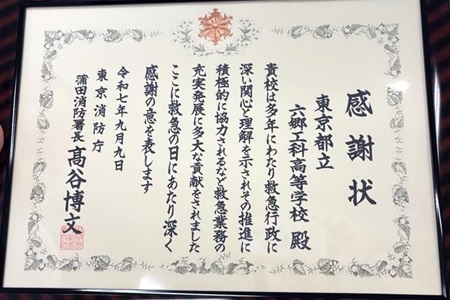 感謝状
東京都立
六郷工科高等学校 殿
貴校は多年にわたり救急行政に
深い関心と理解を示されその推進に
積極的に協力されるなど救急業務の
充実発展に多大な貢献をされました
ここに救急の日にあたり深く
感謝の意を表します
令和七年九月九日
東京消防庁
蒲田消防署長 髙谷博文